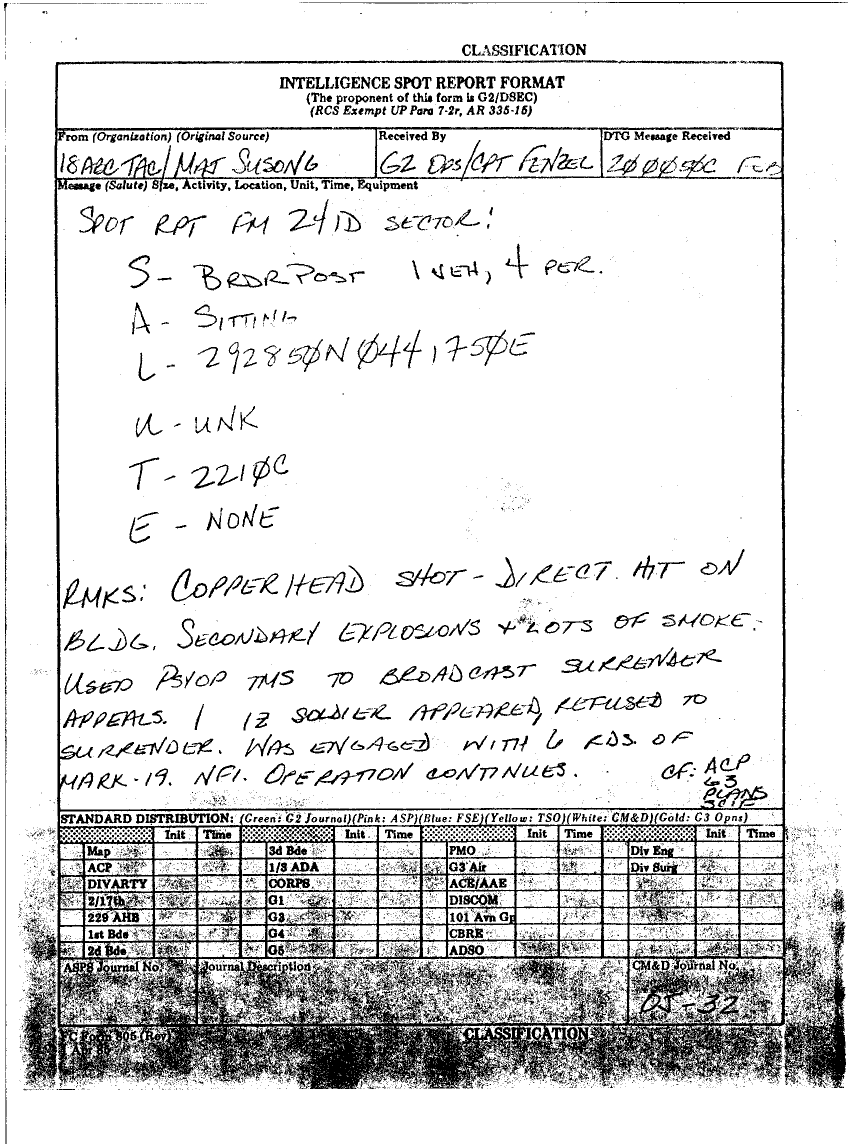 CLASSIFICATION
INTELLIGENCE SPOT REPORT FORMAT
(The proponent of this form is G2/DSEC)
(RCS Exempt UP Para 7-2r, AR 335-15)
From (Organization) (Original Source) Received By DTG Message Received
18ABC TAC/ MAJ SUSONG G2 OPS/CPT FENZEL 200050C FEB
Message (Salute) Size, Activity, Location, Unit, Time, Equipment
SPOT RPT FM 24ID SECTOR:
S - BRDR POST 1 VEH, 4 PER.
A - SITTING
L - 292850N 0441750E
U - UNK
T - 2210C
E - NONE
RMKS: COPPERHEAD SHOT - DIRECT HIT ON
BLDG. SECONDARY EXPLOSIONS + LOTS OF SMOKE.
USED PSYOP TMS TO BROADCAST SURRENDER
APPEALS. 1 IZ SOLDIER APPEARED, REFUSED TO
SURRENDER. WAS ENGAGED WITH 6 RDS. OF
MARK-19. NFI. OPERATION CONTINUES. CF: ACP
G3
PLANS
SCIF
STANDARD DISTRIBUTION: (Green: G2 Journal)(Pink: ASP)(Blue: FSE)(Yellow: TSO)(White: CM&D)(Gold: G3 Opns)
Init Time Init Time Init Time Init Time
Map 3d Bde PMO Div Eng
ACP 1/3 ADA G3 Air Div Surg
DIVARTY CORPS ACE/AAE
2/17th G1 DISCOM
229 AHB G3 101 Avn Gp
1st Bde G4 CBRE
2d Bde G5 ADSO
ASPS Journal No. Journal Description CM&D Journal No.
05-32
(Rev) CLASSIFICATION